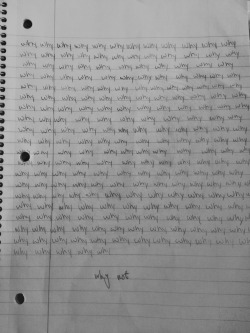 why why why why why why why why why why why why
why why why why why why why why why why why why
why why why why why why why why why why why
why why why why why why why why why why why why
why why why why why why why why why why why why
why why why why why why why why why why why why
why why why why why why why why why why why why
why why why why why why why why why why why why
why why why why why why why why why why why why
why why why why why why why why why why why why
why why why why why why why why why why why why
why why why why why why why why why why why why
why why why why why why why why why why why why
why why why why why why why why why why why why
why why why why why why why why why why why why
why why why why why why why why why why why why
why why why why why why why why why why why why
why why why why why why why why why why why why
why why why why why
why not